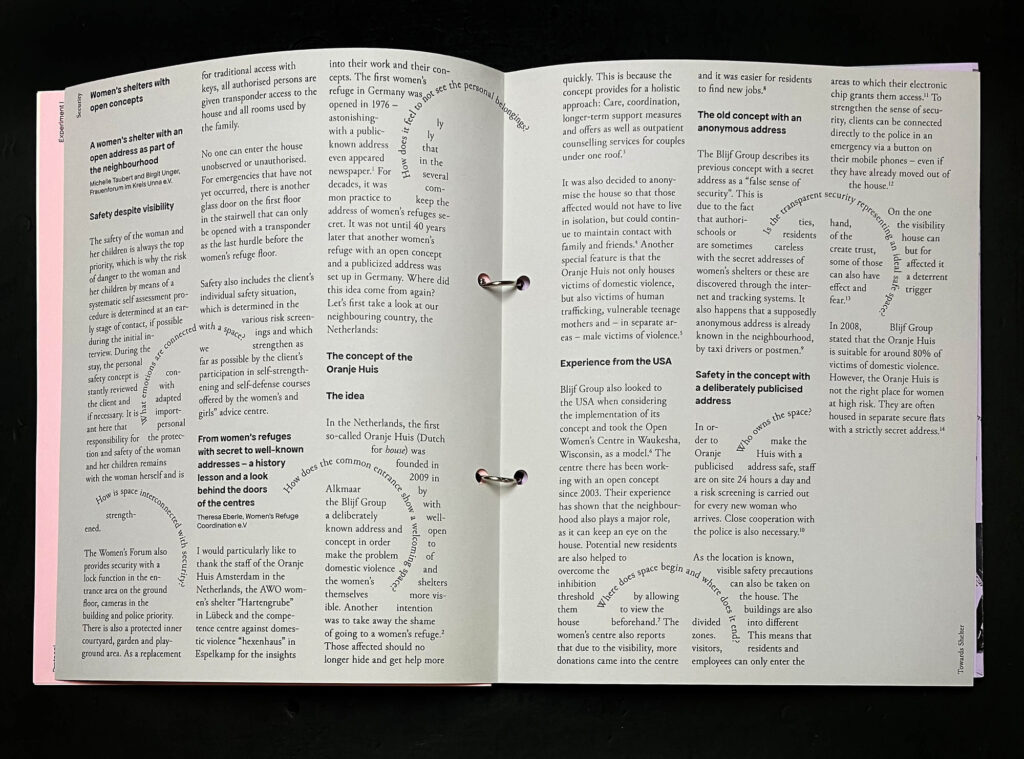 Experiment I
Security
Women's shelters with
open concepts
A women's shelter with an
open address as part of
the neighbourhood
Michelle Taubert and Birgit Unger,
Frauenforum im Kreis Unna e.V.
Safety despite visibility
The safety of the woman and
her children is always the top
priority, which is why the risk
of danger to the woman and
her children by means of a
systematic self assessment pro-
cedure is determined at an ear-
ly stage of contact, if possible
during the initial in-
terview. During the
stay, the personal
safety concept is con-
stantly reviewed with
the client and adapted
if necessary. It is import-
ant here that personal
responsibility for the protec-
tion and safety of the woman
and her children remains
with the woman herself and is
strength-
ened.
What emotions are connected with a space?
How is space interconnected with security?
The Women's Forum also
provides security with a
lock function in the en-
trance area on the ground
floor, cameras in the
building and police priority.
There is also a protected inner
courtyard, garden and play-
ground area. As a replacement
for traditional access with
keys, all authorised persons are
given transponder access to the
house and all rooms used by
the family.
No one can enter the house
unobserved or unauthorised.
For emergencies that have not
yet occurred, there is another
glass door on the first floor
in the stairwell that can only
be opened with a transponder
as the last hurdle before the
women's refuge floor.
Safety also includes the client's
individual safety situation,
which is determined in the
various risk screen-
ings and which
we strengthen as
far as possible by the client's
participation in self-strength-
ening and self-defense courses
offered by the women's and
girls" advice centre.
From women's refuges
with secret to well-known
addresses – a history
lesson and a look
behind the doors
of the centres
Theresa Eberle, Women's Refuge
Coordination e.V
I would particularly like to
thank the staff of the Oranje
Huis Amsterdam in the
Netherlands, the AWO wom-
en's shelter "Hartengrube"
in Lübeck and the compe-
tence centre against domes-
tic violence "hexenhaus" in
Espelkamp for the insights
into their work and their con-
cepts. The first women's
refuge in Germany was
opened in 1976 –
astonishing- ly
with a public- ly
known address that
even appeared in the
newspaper.¹ For several
decades, it was com-
mon practice to keep the
address of women's refuges se-
cret. It was not until 40 years
later that another women's
refuge with an open concept
and a publicized address was
set up in Germany. Where did
this idea come from again?
Let's first take a look at our
neighbouring country, the
Netherlands:
How does it feel to not see the personal belongings?
The concept of the
Oranje Huis
The idea
In the Netherlands, the first
so-called Oranje Huis (Dutch
for house) was
founded in
2009 in
Alkmaar by
the Blijf Group with
a deliberately well-
known address and open
concept in order to
make the problem of
domestic violence and
the women's shelters
themselves more vis-
ible. Another intention
was to take away the shame
of going to a women's refuge.²
Those affected should no
longer hide and get help more
How does the common entrance show a welcoming space?
quickly. This is because the
concept provides for a holistic
approach: Care, coordination,
longer-term support measures
and offers as well as outpatient
counselling services for couples
under one roof.³
It was also decided to anony-
mise the house so that those
affected would not have to live
in isolation, but could contin-
ue to maintain contact with
family and friends.⁴ Another
special feature is that the
Oranje Huis not only houses
victims of domestic violence,
but also victims of human
trafficking, vulnerable teenage
mothers and – in separate ar-
eas – male victims of violence.⁵
Experience from the USA
Blijf Group also looked to
the USA when considering
the implementation of its
concept and took the Open
Women's Centre in Waukesha,
Wisconsin, as a model.⁶ The
centre there has been work-
ing with an open concept
since 2003. Their experience
has shown that the neighbour-
hood also plays a major role,
as it can keep an eye on the
house. Potential new residents
are also helped to
overcome the
inhibition
threshold by allowing
them to view the
house beforehand.⁷ The
women's centre also reports
that due to the visibility, more
donations came into the centre
Where does space begin and where does it end?
and it was easier for residents
to find new jobs.⁸
The old concept with an
anonymous address
The Blijf Group describes its
previous concept with a secret
address as a "false sense of
security". This is
due to the fact
that authori- ties,
schools or residents
are sometimes careless
with the secret addresses of
women's shelters or these are
discovered through the inter-
net and tracking systems. It
also happens that a supposedly
anonymous address is already
known in the neighbourhood,
by taxi drivers or postmen.⁹
Safety in the concept with
a deliberately publicised
address
In or-
der to make the
Oranje Huis with a
publicised address safe, staff
are on site 24 hours a day and
a risk screening is carried out
for every new woman who
arrives. Close cooperation with
the police is also necessary.¹⁰
Who owns the space?
As the location is known,
visible safety precautions
can also be taken on
the house. The
buildings are also
divided into different
zones. This means that
visitors, residents and
employees can only enter the
areas to which their electronic
chip grants them access.¹¹ To
strengthen the sense of secu-
rity, clients can be connected
directly to the police in an
emergency via a button on
their mobile phones – even if
they have already moved out of
the house.¹²
Is the transparent security representing an ideal safe space?
On the one
hand, the visibility
of the house can
create trust, but for
some of those affected it
can also have a deterrent
effect and trigger
fear.¹³
In 2008, Blijf Group
stated that the Oranje Huis
is suitable for around 80% of
victims of domestic violence.
However, the Oranje Huis is
not the right place for women
at high risk. They are often
housed in separate secure flats
with a strictly secret address.¹⁴
Towards Shelter